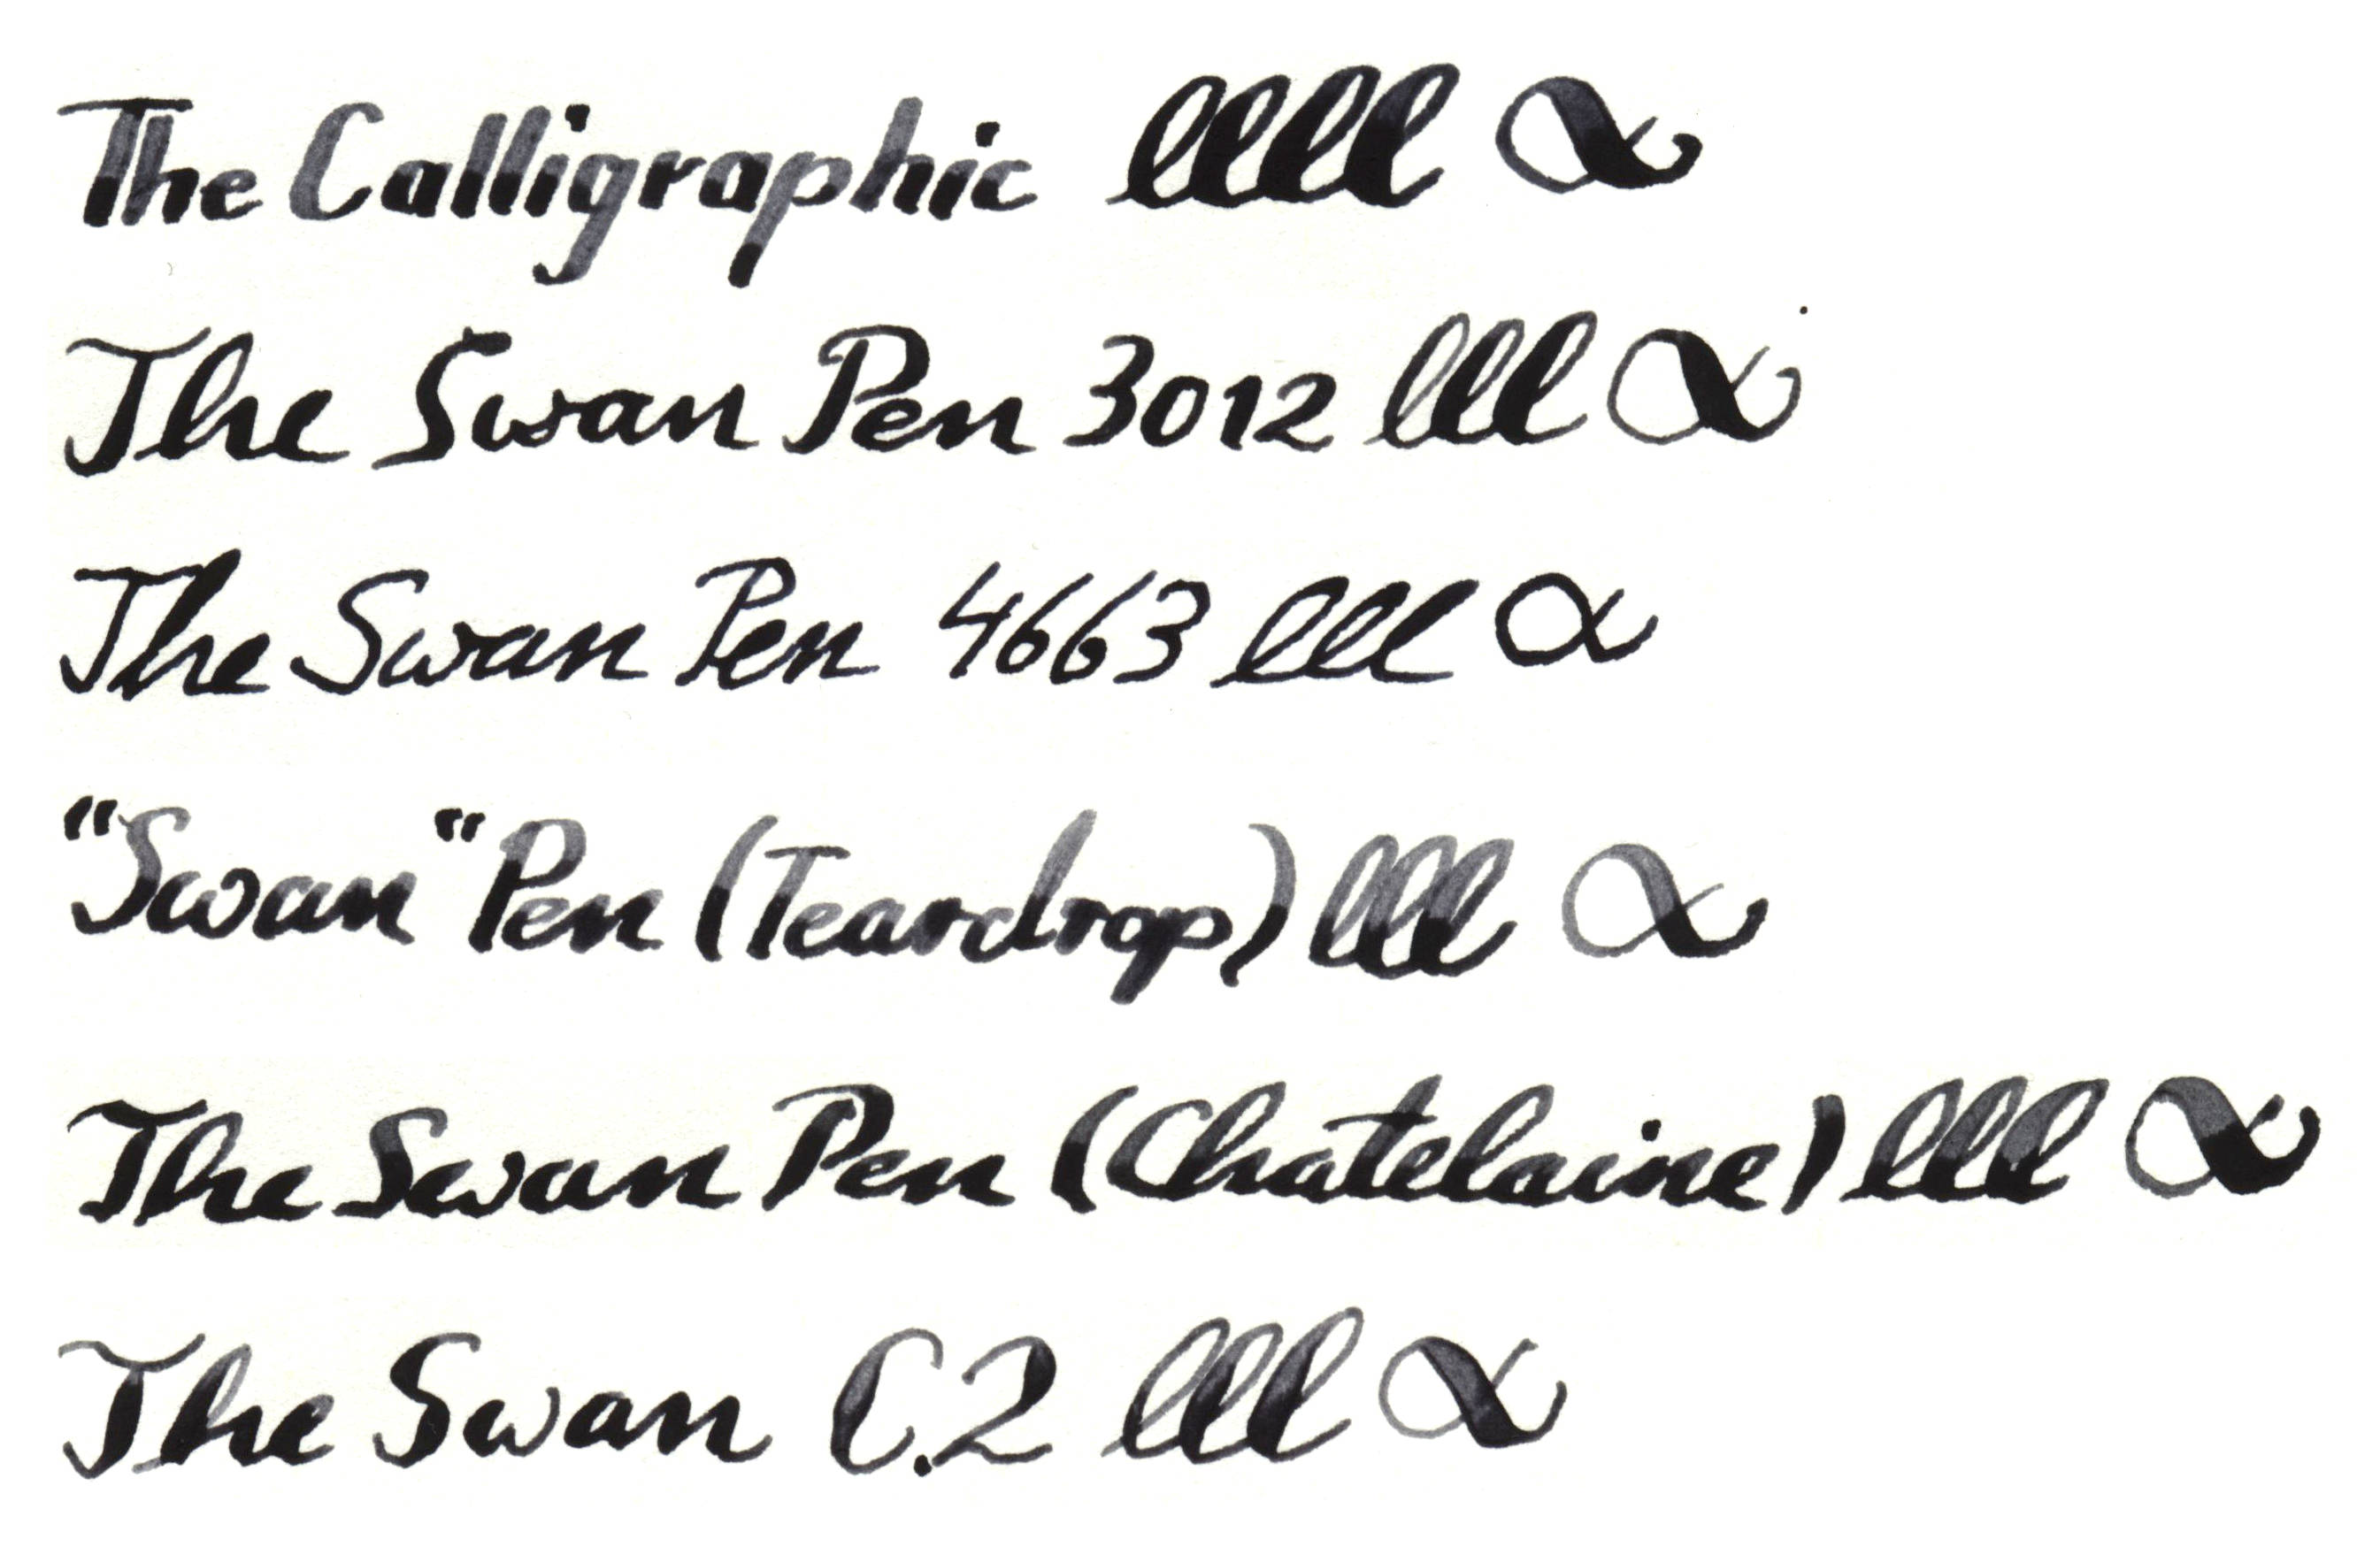 The Calligraphic llll α
The Swan Pen 3012 lll α
The Swan Pen 4663 lll α
"Swan" Pen (Teardrop) lll α
The Swan Pen (Chatelaine) lll α
The Swan C.2 lll α